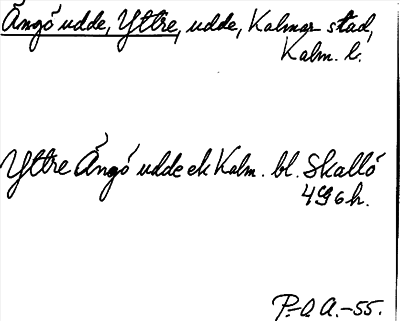 Ängö udde, Yttre, udde, Kalmar stad,
Kalm. l.
Yttre Ängö udde ek Kalm. bl. Skallö
4G6h.
P.-O A.-55.